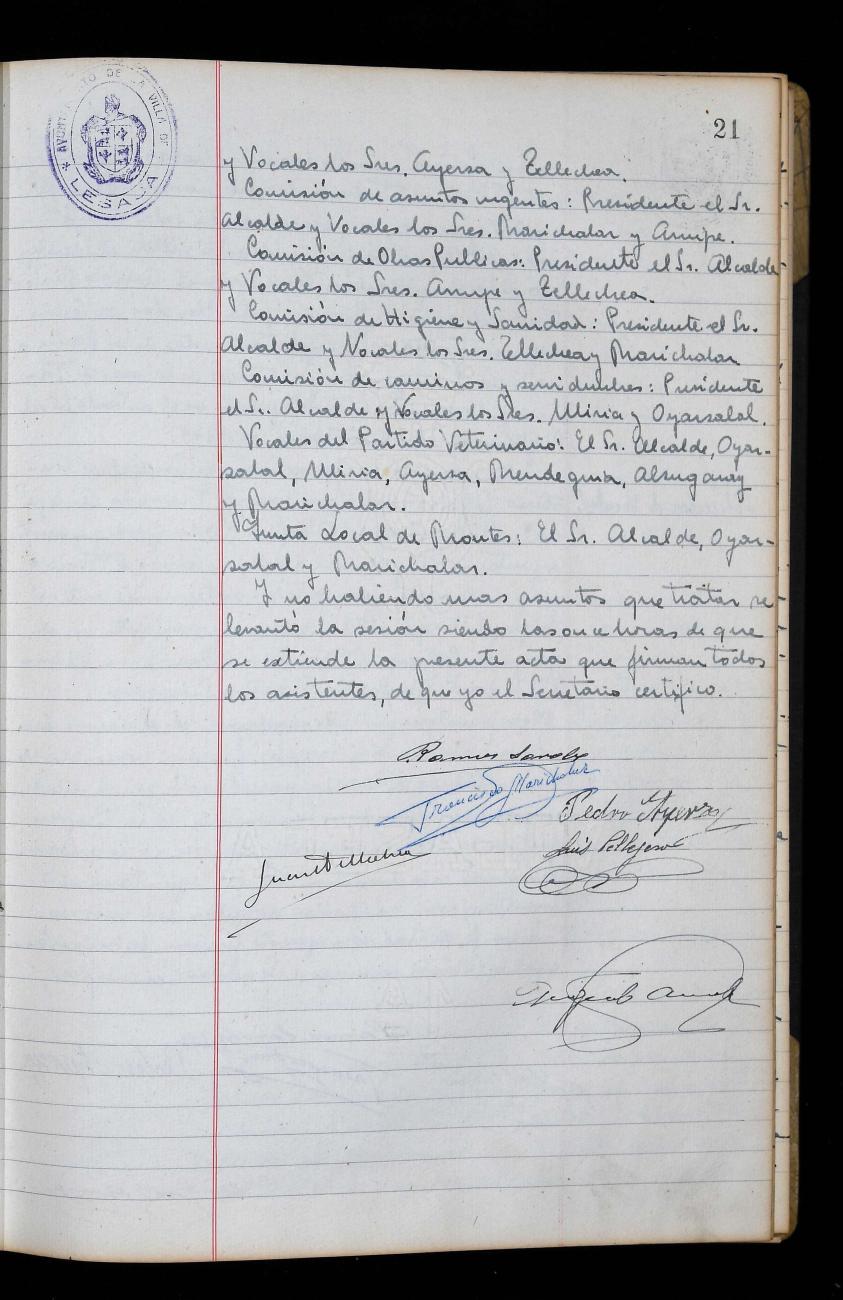 AYUNTAMIENTO DE LA VILLA DE
* LESACA *
21
y Vocales los Sres. Ayersa y Tellechea.
Comisión de asuntos urgentes: Presidente el Sr.
Alcalde y Vocales los Sres. Marichalar y Arrupe.
Comisión de Obras Publicas: Presidente el Sr. Alcalde
y Vocales los Sres. Arrupe y Tellechea.
Comisión de Higiene y Sanidad: Presidente el Sr.
Alcalde y Vocales los Sres. Tellechea y Marichalar
Comisión de caminos y servidumbres: Presidente
el Sr. Alcalde y Vocales los Sres. Miria y Oyarzabal.
Vocales del Partido Veterinario: El Sr. Alcalde, Oyar-
zabal, Miria, Ayersa, Mendeguia, Alzugaray
y Marichalar.
Junta Local de Montes: El Sr. Alcalde, Oyar-
zabal y Marichalar.
Y no habiendo mas asuntos que tratar se
levantó la sesión siendo las once horas de que
se extiende la presente acta que firman todos
los asistentes, de que yo el Secretario certifico.
Ramos
Francisco Marichalar
Pedro Ayersa
Luis Pellejero
Juan